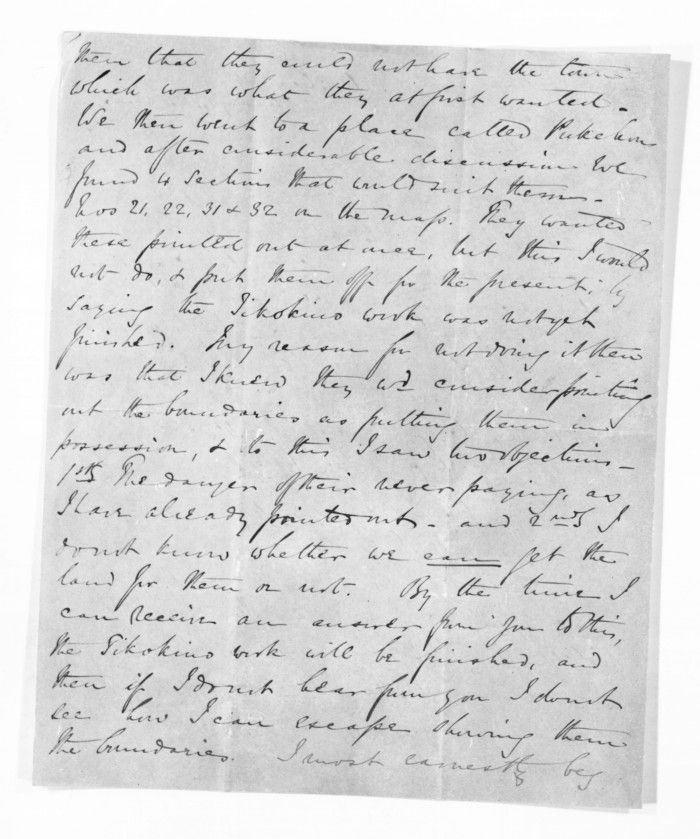 them that they could not have the town
which was what they at first wanted -
We then went to a place called
and after considerable discussion we
found 4 sections that would suit them -
Nos 21, 22, 31 & 32 on the map. They wanted
these pointed out at once, but this I would
not do, & put them off for the present, by
saying the Tikokino work was not yet
finished. My reason for not doing it then
was that I knew they wd consider pointing
out the boundaries as putting them in
possession, & to this I saw two objections -
1st The danger of their never paying, as
I have already pointed out - and 2nd I
do not know whether we can get the
land for them or not. By the time I
can receive an answer from you to this,
the Tikokino work will be finished, and
then if I do not hear from you I do not
see how I can escape showing them
the boundaries. I most earnestly beg